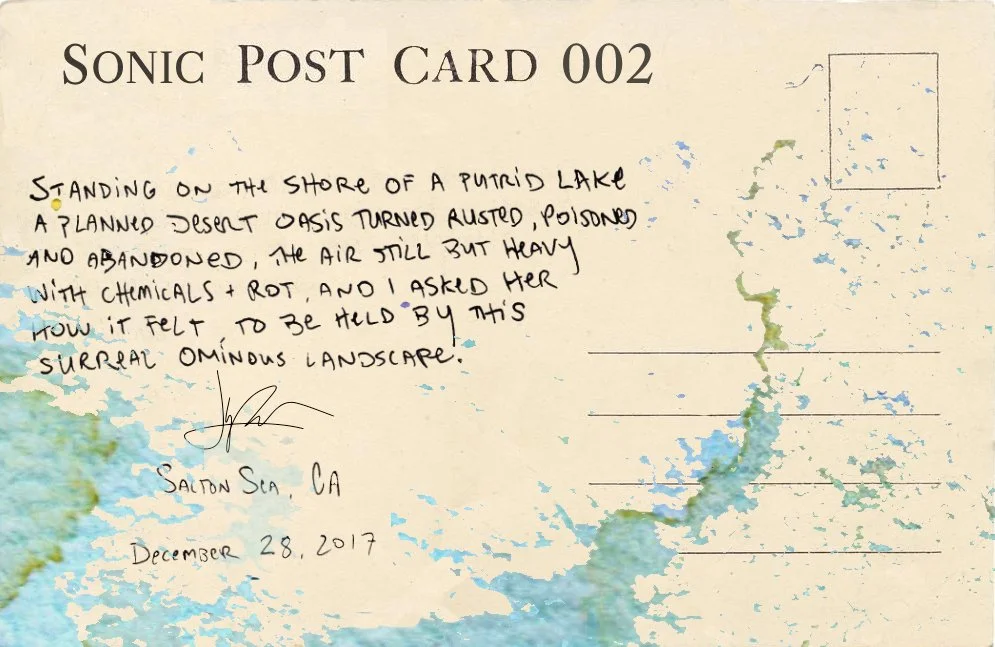 SONIC POST CARD 002
STANDING ON THE SHORE OF A PUTRID LAKE
A PLANNED DESERT OASIS TURNED RUSTED, POISONED
AND ABANDONED, THE AIR STILL BUT HEAVY
WITH CHEMICALS + ROT, AND I ASKED HER
HOW IT FELT TO BE HELD BY THIS
SURREAL OMINOUS LANDSCAPE.
SALTON SEA, CA
DECEMBER 28, 2017